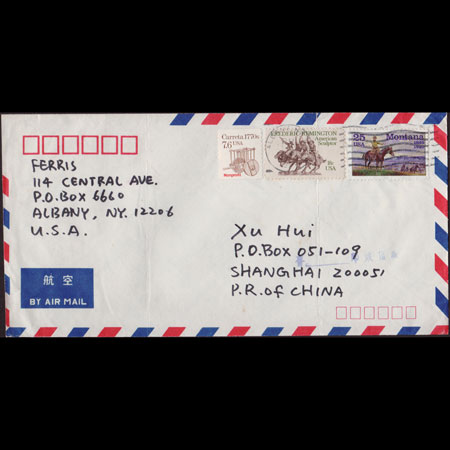 FERRIS
114 CENTRAL AVE.
P.O.BOX 6660
ALBANY, NY. 12206
U.S.A.
航空
BY AIR MAIL
Carreta 1770s
7.6 USA
FREDERIC REMINGTON
American
Sculptor
18c
USA
25
USA
Montana
XU HUI
P.O.BOX 051-109
SHANGHAI 200051
P.R.OF CHINA